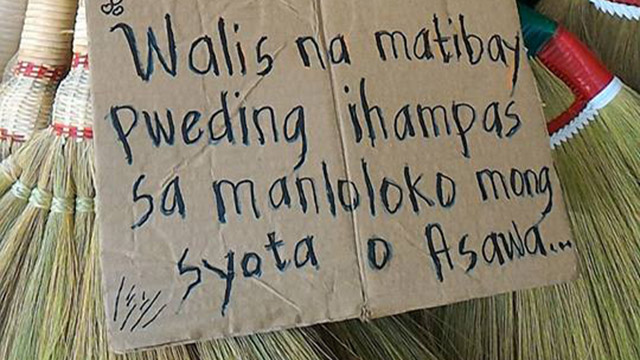 Walis na matibay
pweding ihampas
sa manloloko mong
syota o Asawa...